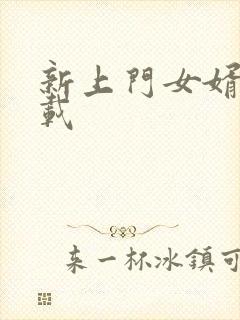 新上門女婿
載
来一杯冰鎮可